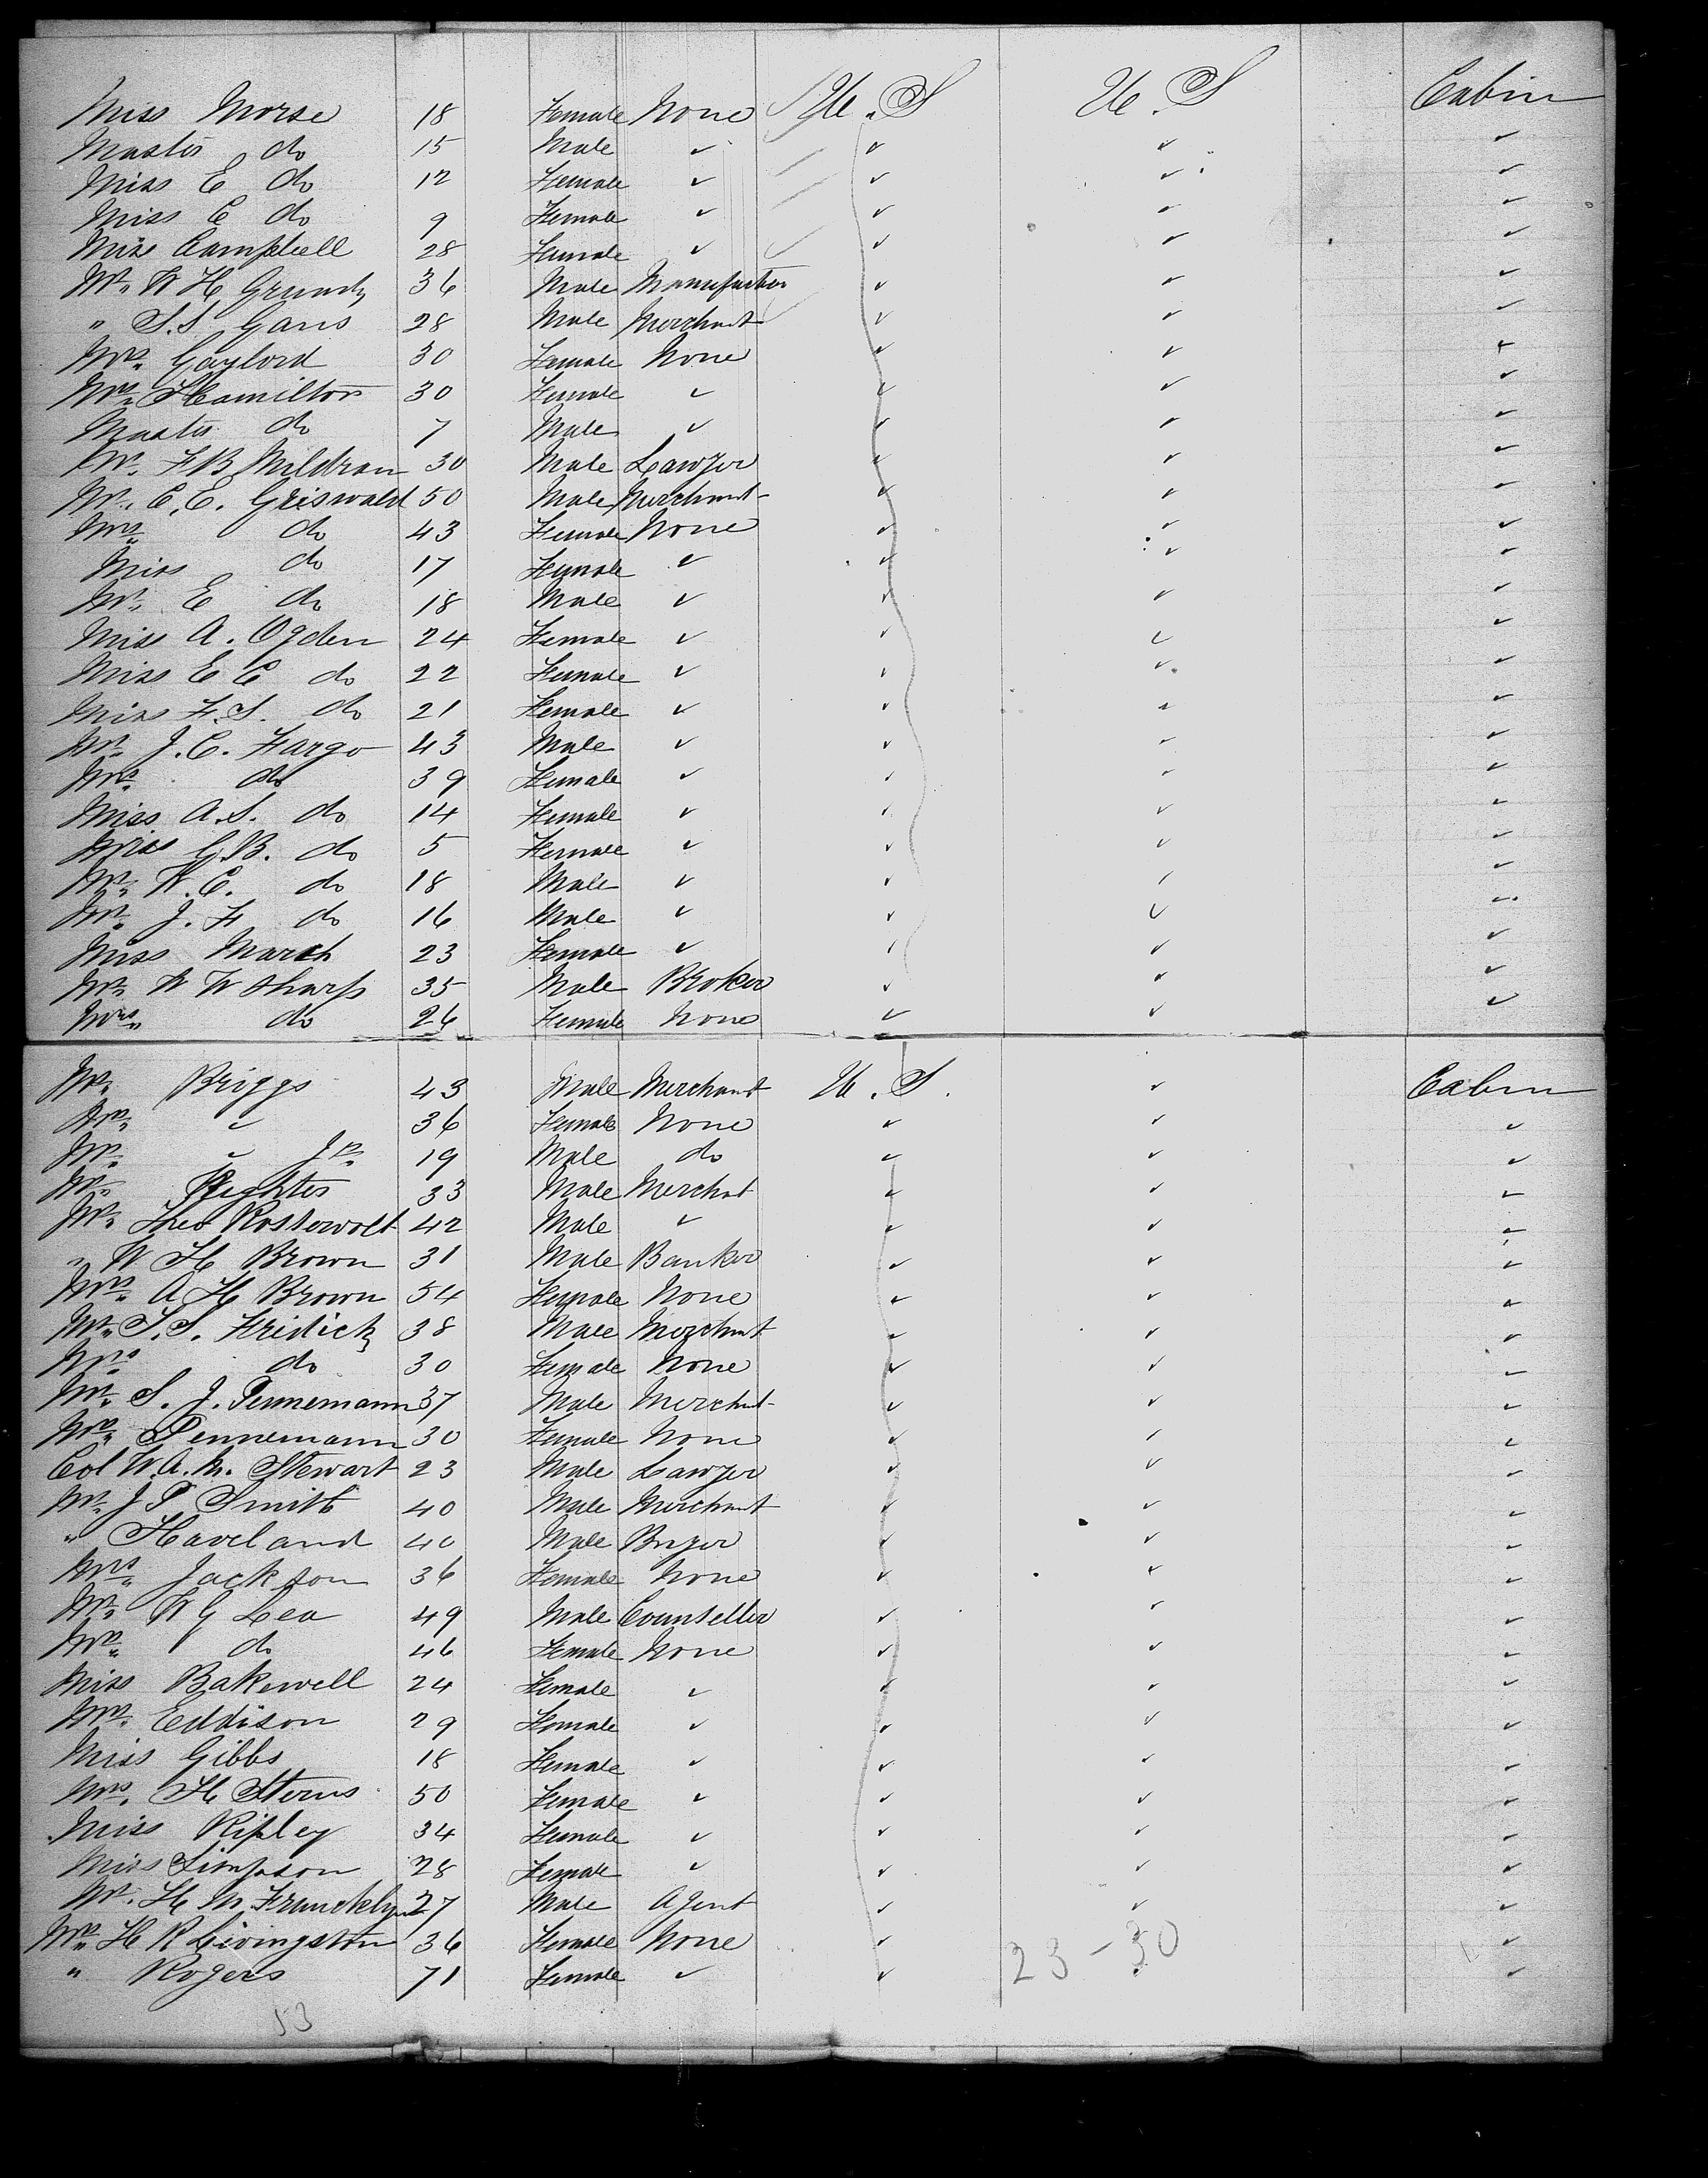 Miss Morse 18 Female None U.S U.S Cabin
Master do 15 Male ✓ ✓ ✓ ✓
Miss E do 12 Female ✓ ✓ ✓ ✓
Miss C do 9 Female ✓ ✓ ✓ ✓
Miss Campbell 28 Female ✓ ✓ ✓ ✓
Mr. W H Grundy 36 Male ✓ ✓ ✓
" S.S Gans 28 Male Merchant ✓ ✓ ✓
Mrs. Gaylord 30 Female None ✓ ✓ ✓
Mrs. Hamilton 30 Female ✓ ✓ ✓ ✓
Master do 7 Male ✓ ✓ ✓ ✓
Mr. F B Mildran 30 Male Lawyer ✓ ✓ ✓
Mr. C.E. Griswald 50 Male Merchant ✓ ✓ ✓
Mrs. do 43 Female None ✓ ✓ ✓
Miss do 17 Female ✓ ✓ ✓ ✓
Mr. E do 18 Male ✓ ✓ ✓ ✓
Miss A. Ogden 24 Female ✓ ✓ ✓ ✓
Miss E C do 22 Female ✓ ✓ ✓ ✓
Miss F.S. do 21 Female ✓ ✓ ✓ ✓
Mr. J.C. Fargo 43 Male ✓ ✓ ✓ ✓
Mrs. do 39 Female ✓ ✓ ✓ ✓
Miss A.S. do 14 Female ✓ ✓ ✓ ✓
Miss G.B. do 5 Female ✓ ✓ ✓ ✓
Mr. W.C. do 18 Male ✓ ✓ ✓ ✓
Mr. J.F do 16 Male ✓ ✓ ✓ ✓
Miss March 23 Female ✓ ✓ ✓ ✓
Mr. W W Sharp 35 Male Broker ✓ ✓ ✓
Mrs. do 26 Female None ✓ ✓ ✓
Mr. Briggs 43 Male Merchant U.S. ✓ Cabin
Mrs. ✓ 36 Female None ✓ ✓ ✓
Mr. ✓ Jr. 19 Male do ✓ ✓ ✓
Mr. Righter 33 Male Merchat ✓ ✓ ✓
Mr. Theo Rosterwolt 42 Male ✓ ✓ ✓ ✓
" W H Brown 31 Male Banker ✓ ✓ ✓
Mrs. A H Brown 54 Female None ✓ ✓ ✓
Mr. S.S. 38 Male Merchant ✓ ✓ ✓
Mrs. do 30 Female None ✓ ✓ ✓
Mr. S. J. Pennemann 37 Male Merchant ✓ ✓ ✓
Mrs. Pennemann 30 Female None ✓ ✓ ✓
Col W.A.M. Stewart 23 Male Lawyer ✓ ✓ ✓
Mr. J P Smith 40 Male Merchant ✓ ✓ ✓
" Haveland 40 Male Buyer ✓ ✓ ✓
Mrs. Jackson 36 Female None ✓ ✓ ✓
Mr. W G Lea 49 Male Counsellor ✓ ✓ ✓
Mrs. do 46 Female None ✓ ✓ ✓
Miss Bakewell 24 Female ✓ ✓ ✓ ✓
Mrs. Eddison 29 Female ✓ ✓ ✓ ✓
Miss Gibbs 18 Female ✓ ✓ ✓ ✓
Mrs. H Sterns 50 Female ✓ ✓ ✓ ✓
Miss Ripley 34 Female ✓ ✓ ✓ ✓
Miss Simpson 28 Female ✓ ✓ ✓ ✓
Mr. H M Francklyn 27 Male Agent ✓ ✓ ✓
Mrs. H R Livingston 36 Female None ✓ ✓
" Rogers 71 Female ✓ ✓ 23-30 ✓
53